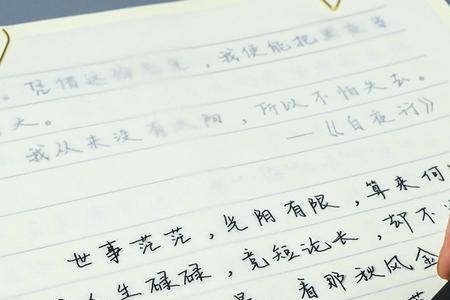 。凭借这，我便能把
天。
我从来没有太阳，所以不怕失去。
—《白夜行》
世事茫茫，光阴有限，算来何
生碌碌，竞短论长，却不
看那秋风金